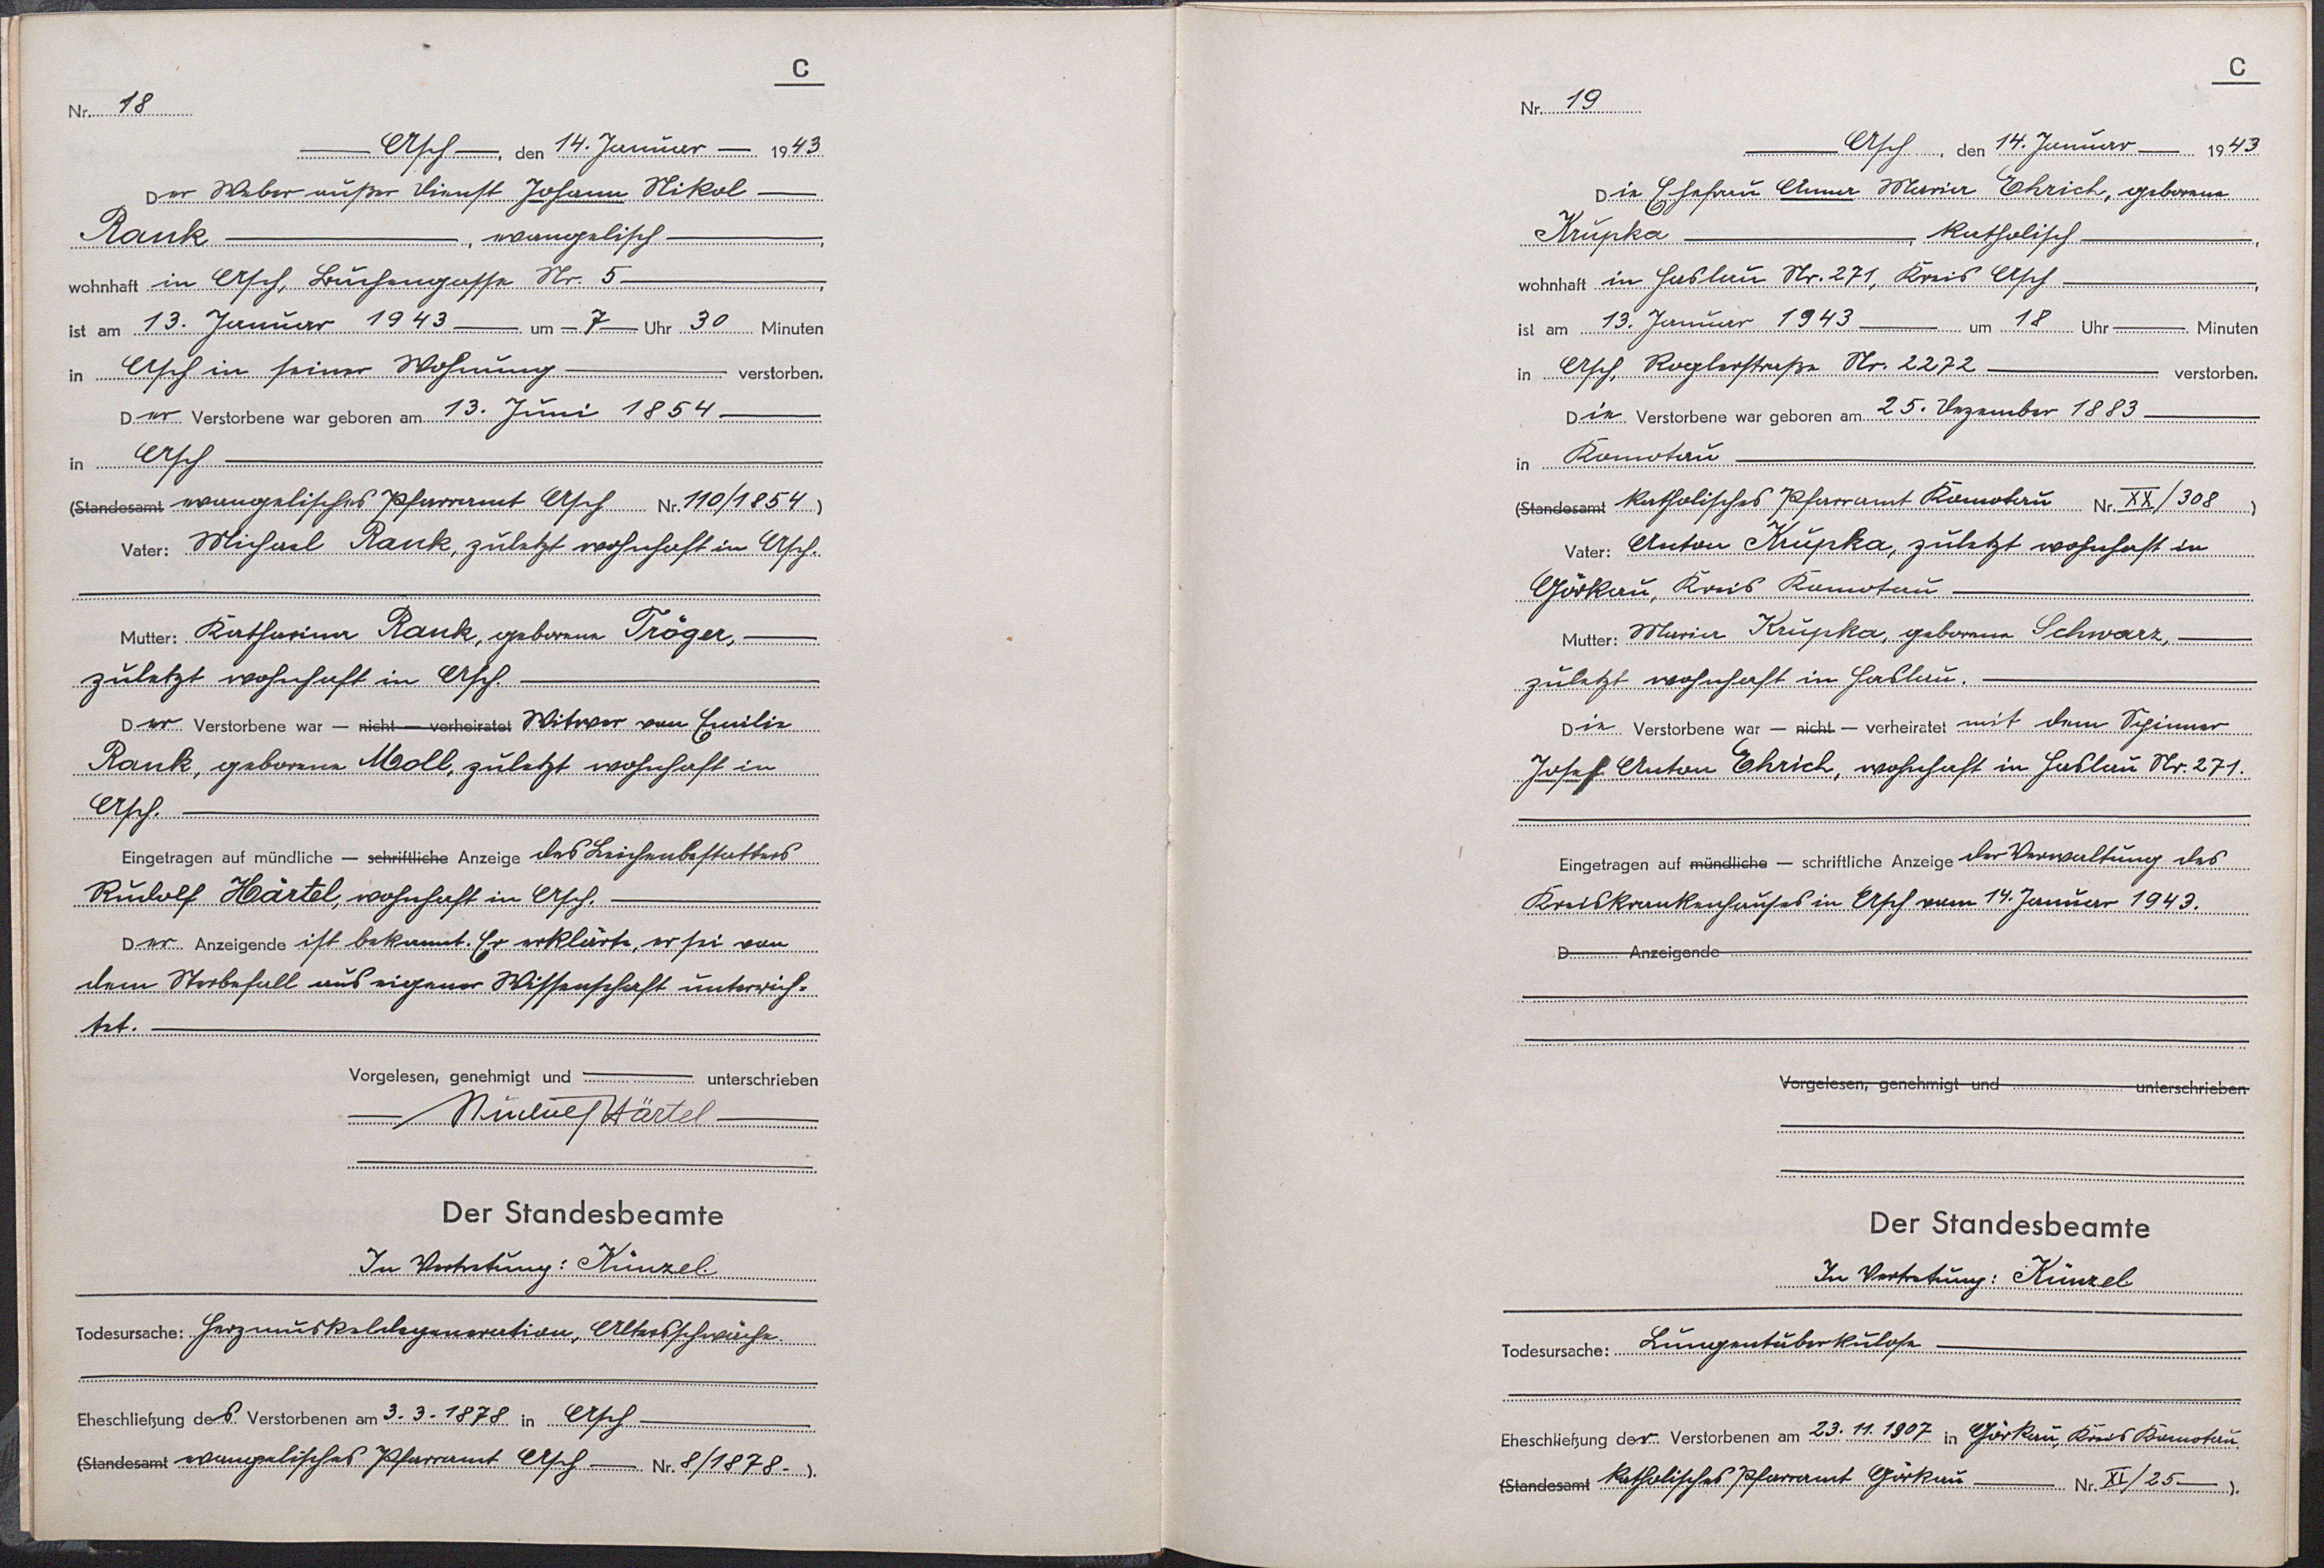 C
Nr. 18
Asch, den 14. Januar 1943
Der Weber außer Dienst Johann Nikol
Rank, evangelisch,
wohnhaft in Asch, Buchengasse Nr. 5,
ist am 13. Januar 1943 um 7 Uhr 30 Minuten
in Asch in seiner Wohnung verstorben.
Der Verstorbene war geboren am 13. Juni 1854
in Asch
(Standesamt evangelisches Pfarramt Asch Nr. 110/1854)
Vater: Michael Rank, zuletzt wohnhaft in Asch.
Mutter: Katharina Rank, geborene Tröger,
zuletzt wohnhaft in Asch.
Der Verstorbene war — nicht — verheiratet Witwer von Emilie
Rank, geborene Moll, zuletzt wohnhaft in
Asch.
Eingetragen auf mündliche — schriftliche Anzeige des Leichenbestatters
Rudolf Härtel, wohnhaft in Asch.
Der Anzeigende ist bekannt. Er erklärte, er sei von
dem Sterbefall aus eigener Wissenschaft unterrich-
tet.
Vorgelesen, genehmigt und unterschrieben
Rudolf Härtel
Der Standesbeamte
In Vertretung: Künzel.
Todesursache: Herzmuskeldegeneration, Altersschwäche.
Eheschließung des Verstorbenen am 3.3.1878 in Asch
(Standesamt evangelisches Pfarramt Asch Nr. 8/1878-).
C
Nr. 19
Asch, den 14. Januar 1943
Die Ehefrau Anna Maria Ehrich, geborene
Krupka, katholisch,
wohnhaft in Haslau Nr. 271, Kreis Asch,
ist am 13. Januar 1943 um 18 Uhr Minuten
in Asch, Roglerstraße Nr. 2272 verstorben.
Die Verstorbene war geboren am 25. Dezember 1883
in Komotau
(Standesamt katholisches Pfarramt Komotau Nr. XX/308)
Vater: Anton Krupka, zuletzt wohnhaft in
Görkau, Kreis Komotau
Mutter: Maria Krupka, geborene Schwarz,
zuletzt wohnhaft in Haslau.
Die Verstorbene war — nicht — verheiratet mit dem Spinner
Josef Anton Ehrich, wohnhaft in Haslau Nr. 271.
Eingetragen auf mündliche — schriftliche Anzeige der Verwaltung des
Kreiskrankenhauses in Asch vom 14. Januar 1943.
D Anzeigende
Vorgelesen, genehmigt und unterschrieben
Der Standesbeamte
In Vertretung: Künzel
Todesursache: Lungentuberkulose
Eheschließung der Verstorbenen am 23.11.1907 in Görkau, Kreis Komotau.
(Standesamt katholisches Pfarramt Görkau Nr. XI/25).